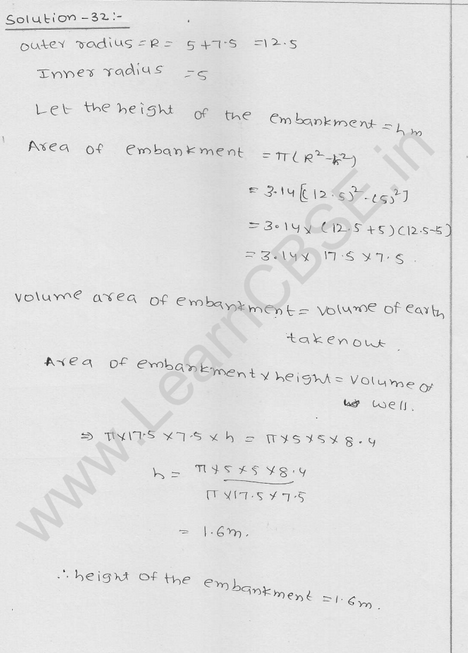 Solution-32:-
outer radius = R = 5+7.5 = 12.5
Inner radius = 5
Let the height of the embankment = h m
Area of embankment = π(R²-r²)
= 3.14[(12.5)²-(5)²]
= 3.14×(12.5+5)(12.5-5)
= 3.14× 17.5×7.5.
volume area of embankment = volume of earth
taken out.
Area of embankment × height = volume of
well.
⇒ π×17.5×7.5×h = π×5×5×8.4
h = π×5×5×8.4
π×17.5×7.5
= 1.6m.
∴ height of the embankment = 1.6m.
www.LearnCBSE.in